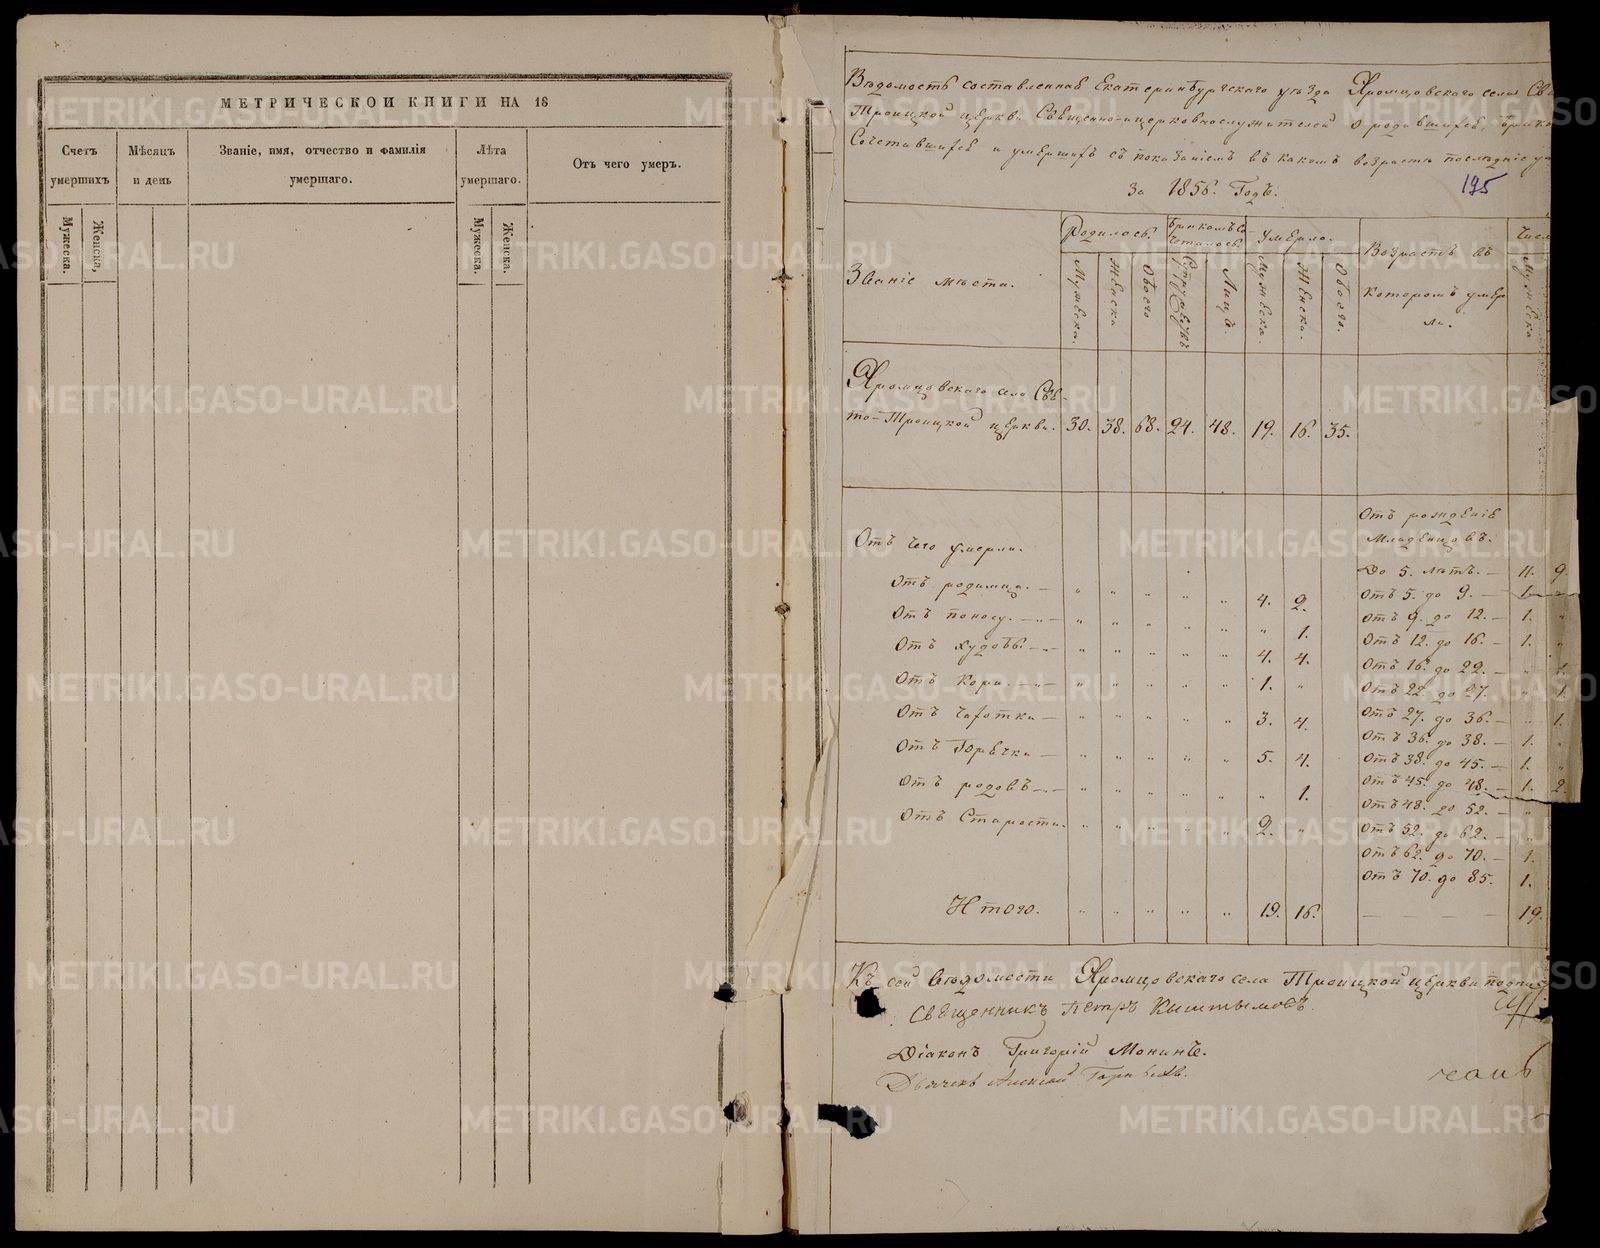 МЕТРИЧЕСКОЙ КНИГИ НА 18
Счетъ умершихъ
Мѣсяцъ и день
Званіе, имя, отчество и фамилія умершаго.
Лѣта умершаго.
Отъ чего умеръ.
Мужеска.
Женска,
Мужеска.
Женска.
Вѣдомость составленная Екатеринбургскаго уѣзда Хромцовскаго села Свя
Троицкой церкви Священно-церковнослужителей о родившихся, брако
Сочетавшихся и умершихъ съ показаніемъ въ какомъ возрастѣ послѣдніе
за 1856. Годъ.
195
Званіе мѣста.
Родилось.
Бракомъ Со четалось.
Умерло.
Возрастъ въ
которомъ умер
ли.
Числ
Мужеска.
Женска
Обоего
Супружествъ
Лицъ.
Мужеска.
Женска.
Обоего.
Мужеска
Хромцовскаго село Свя-
то-Троицкой церкви. 30. 38. 68. 24. 48. 19. 16. 35.
Отъ чего умерли.
Отъ родимца. — " " " " " 4. 2.
Отъ поносу. — " " " " " " 1.
Отъ худобы. — " " " " " 4. 4.
Отъ Кори. — " " " " " 1. "
Отъ Чахотки — " " " " " 3. 4.
Отъ Горячки — " " " " " 5. 4.
Отъ родовъ — " " " " " " 1.
Отъ Старости. " " " " " 2. "
Итого. " " " " " 19. 16.
Отъ рожденіе
Младенцовъ.
До 5. лѣтъ. — 11. 9.
Отъ 5. до 9. — 1. "
Отъ 9. до 12. — 1. "
Отъ 12. до 16. — 1. "
Отъ 16. до 22. — " 1.
Отъ 22. до 27. " 1.
Отъ 27. до 36. — " 1.
Отъ 36. до 38. — 1. "
Отъ 38. до 45. — 1. "
Отъ 45. до 48. — 1. 2.
Отъ 48. до 52. — "
Отъ 52. до 62. — "
Отъ 62. до 70. — 1.
Отъ 70. до 85. 1.
— — — — 19.
Къ сей вѣдомости Хромцовскаго села Троицкой церкви подпис
Священникъ Петръ Кыштымовъ.
Діаконъ Григорій
Дьячекъ Алексѣй
METRIKI.GASO-URAL.RU